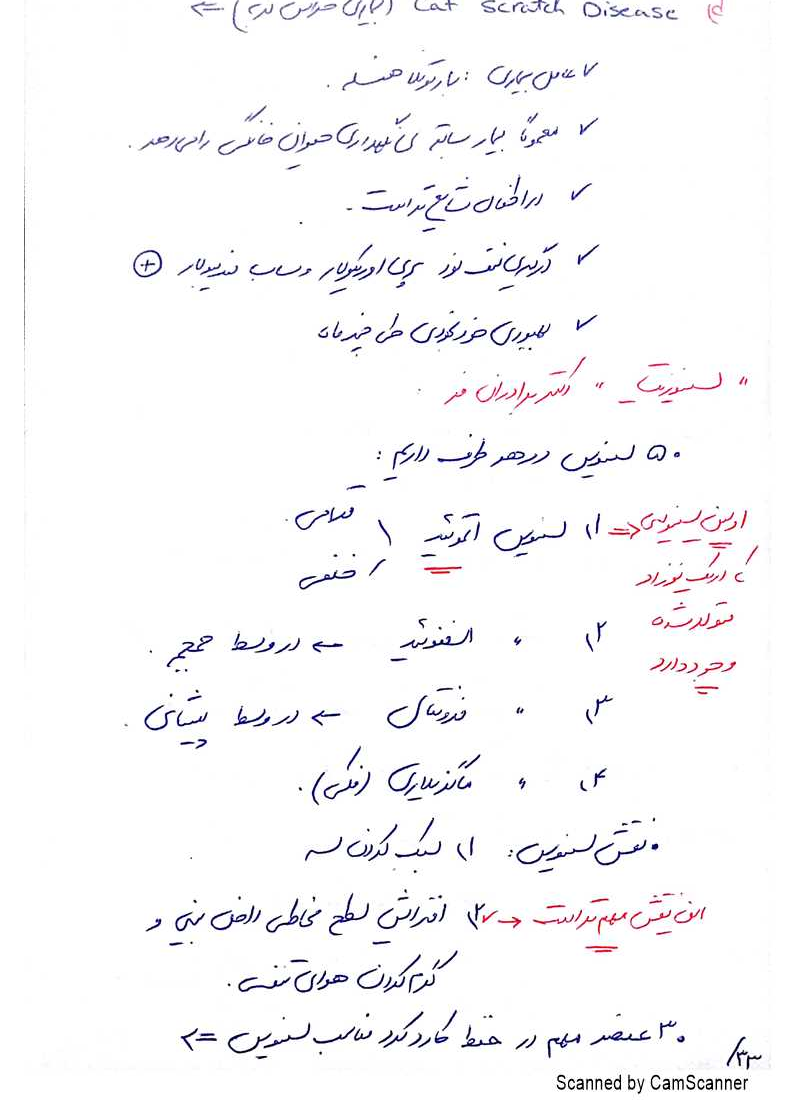 Cat Scratch Disease (بیماری خراش گربه) ⇐
✓ عامل بیماری : بارتونلا هنسله .
✓ معمولاً بیمار سابقه ی نگهداری حیوان خانگی را می دهد .
✓ در اطفال شایع تر است .
✓ درگیری غدد لنفاوی پری اوریکولار و ساب مندیبولار ⊕
✓ بهبودی خودبخودی طی چند ماه
" سینوزیت " دکتر برادران فر .
• ۵ سینوس در هر طرف داریم :
۱) سینوس اتموئید قدامی .
خلفی
اولین سینوسی ⇐
که در یک نوزاد
متولد شده
وجود دارد
۲) " اسفنوئید ← در وسط جمجمه .
۳) " فرونتال ← در وسط پیشانی .
۴) " ماگزیلاری (فکی) .
• نقش سینوس : ۱) سبک کردن سر
۲) افزایش سطح مخاطی داخل بینی و
این نقش مهم تر است →
گرم کردن هوای تنفسی .
• ۳ عنصر مهم در حفظ کارکرد مناسب سینوس ⇐
۳۳/
Scanned by CamScanner